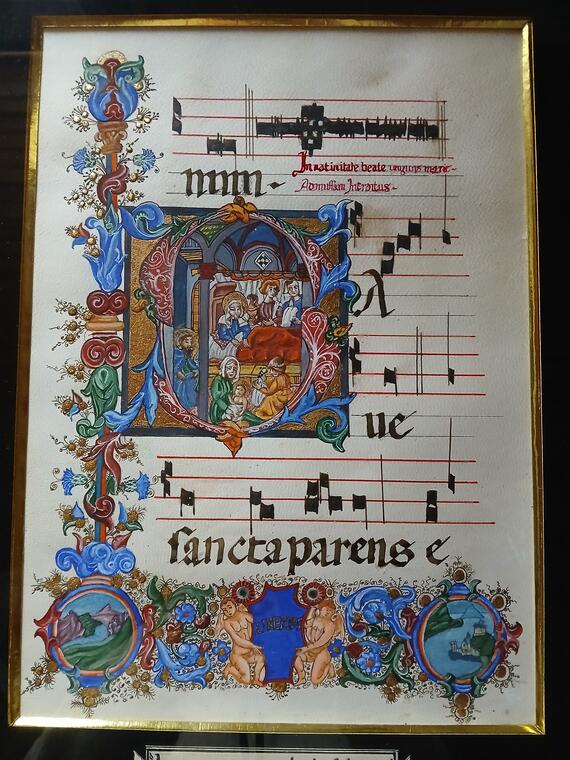 num-
In natinitate beate uirginis marie-
Ad missam Introitus-
A
ue
sancta parens e